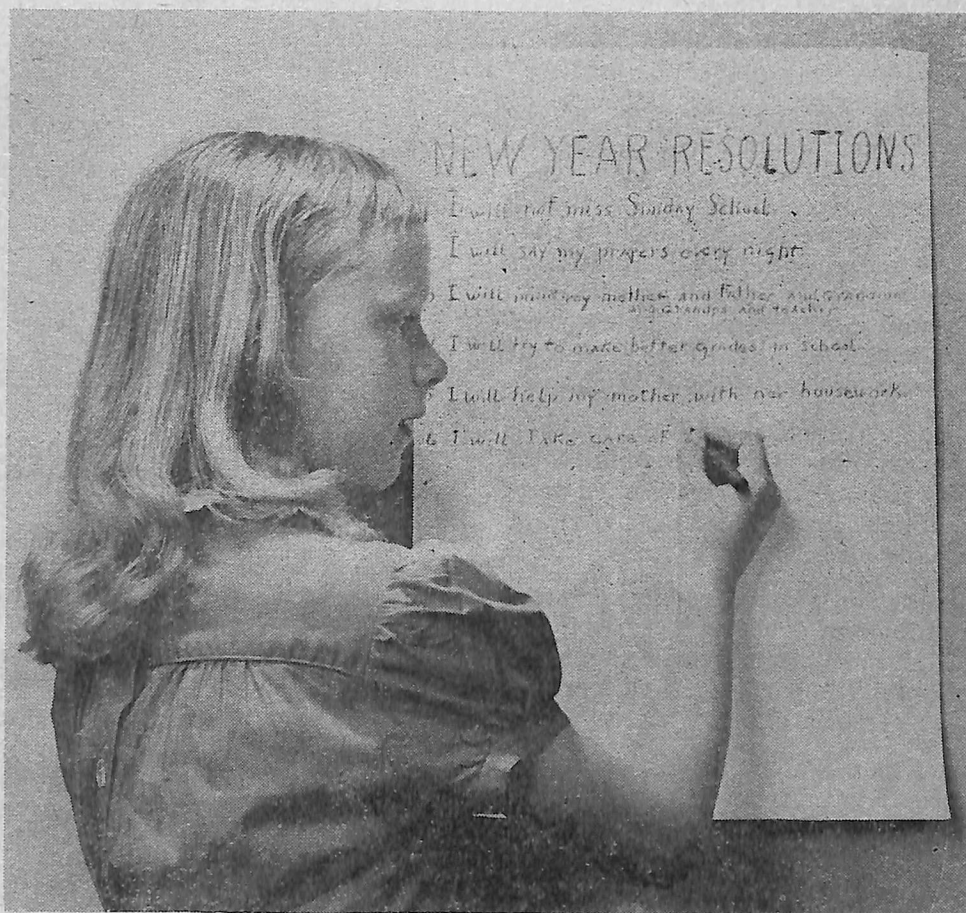 NEW YEAR RESOLUTIONS
I will not miss Sunday School
I will say my prayers every night
I will mind my mother and Father and Grandma
and Grandpa and teacher
I will try to make better grades in school
I will help my mother with her housework
6 I will Take care of